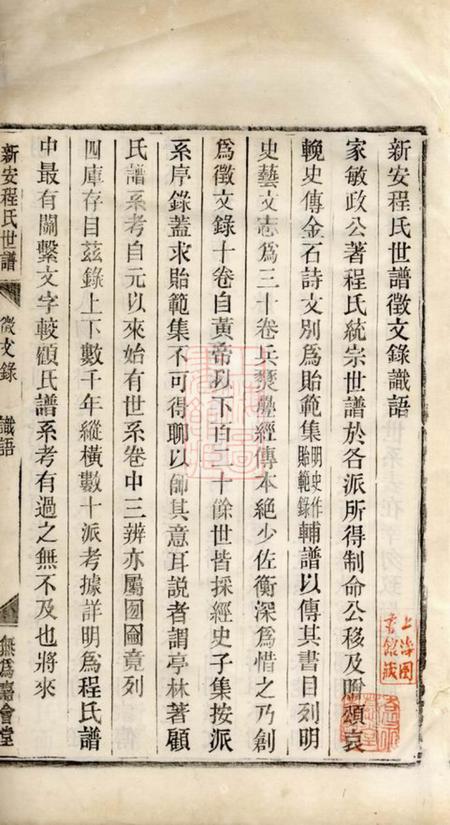 新安程氏世譜徵文錄識語
家敏政公著程氏統宗世譜於各派所得制命公移及贈頌哀
輓史傳金石詩文別爲貽範集明史作貽範錄輔譜以傳其書目列明
史藝文志爲三十卷兵燹疊經傳本絕少佐衡深爲惜之乃創
爲徵文錄十卷自黃帝以下百二十餘世皆採經史子集按派
系序錄蓋求貽範集不可得聊以師其意耳說者謂亭林著顧
氏譜系考自元以來始有世系卷中三辨亦屬囫圇竟列
四庫存目茲錄上下數千年縱橫數十派考據詳明爲程氏譜
中最有關繫文字較顧氏譜系考有過之無不及也將來
新安程氏世譜
徵文錄
識語
上海圖
書館藏